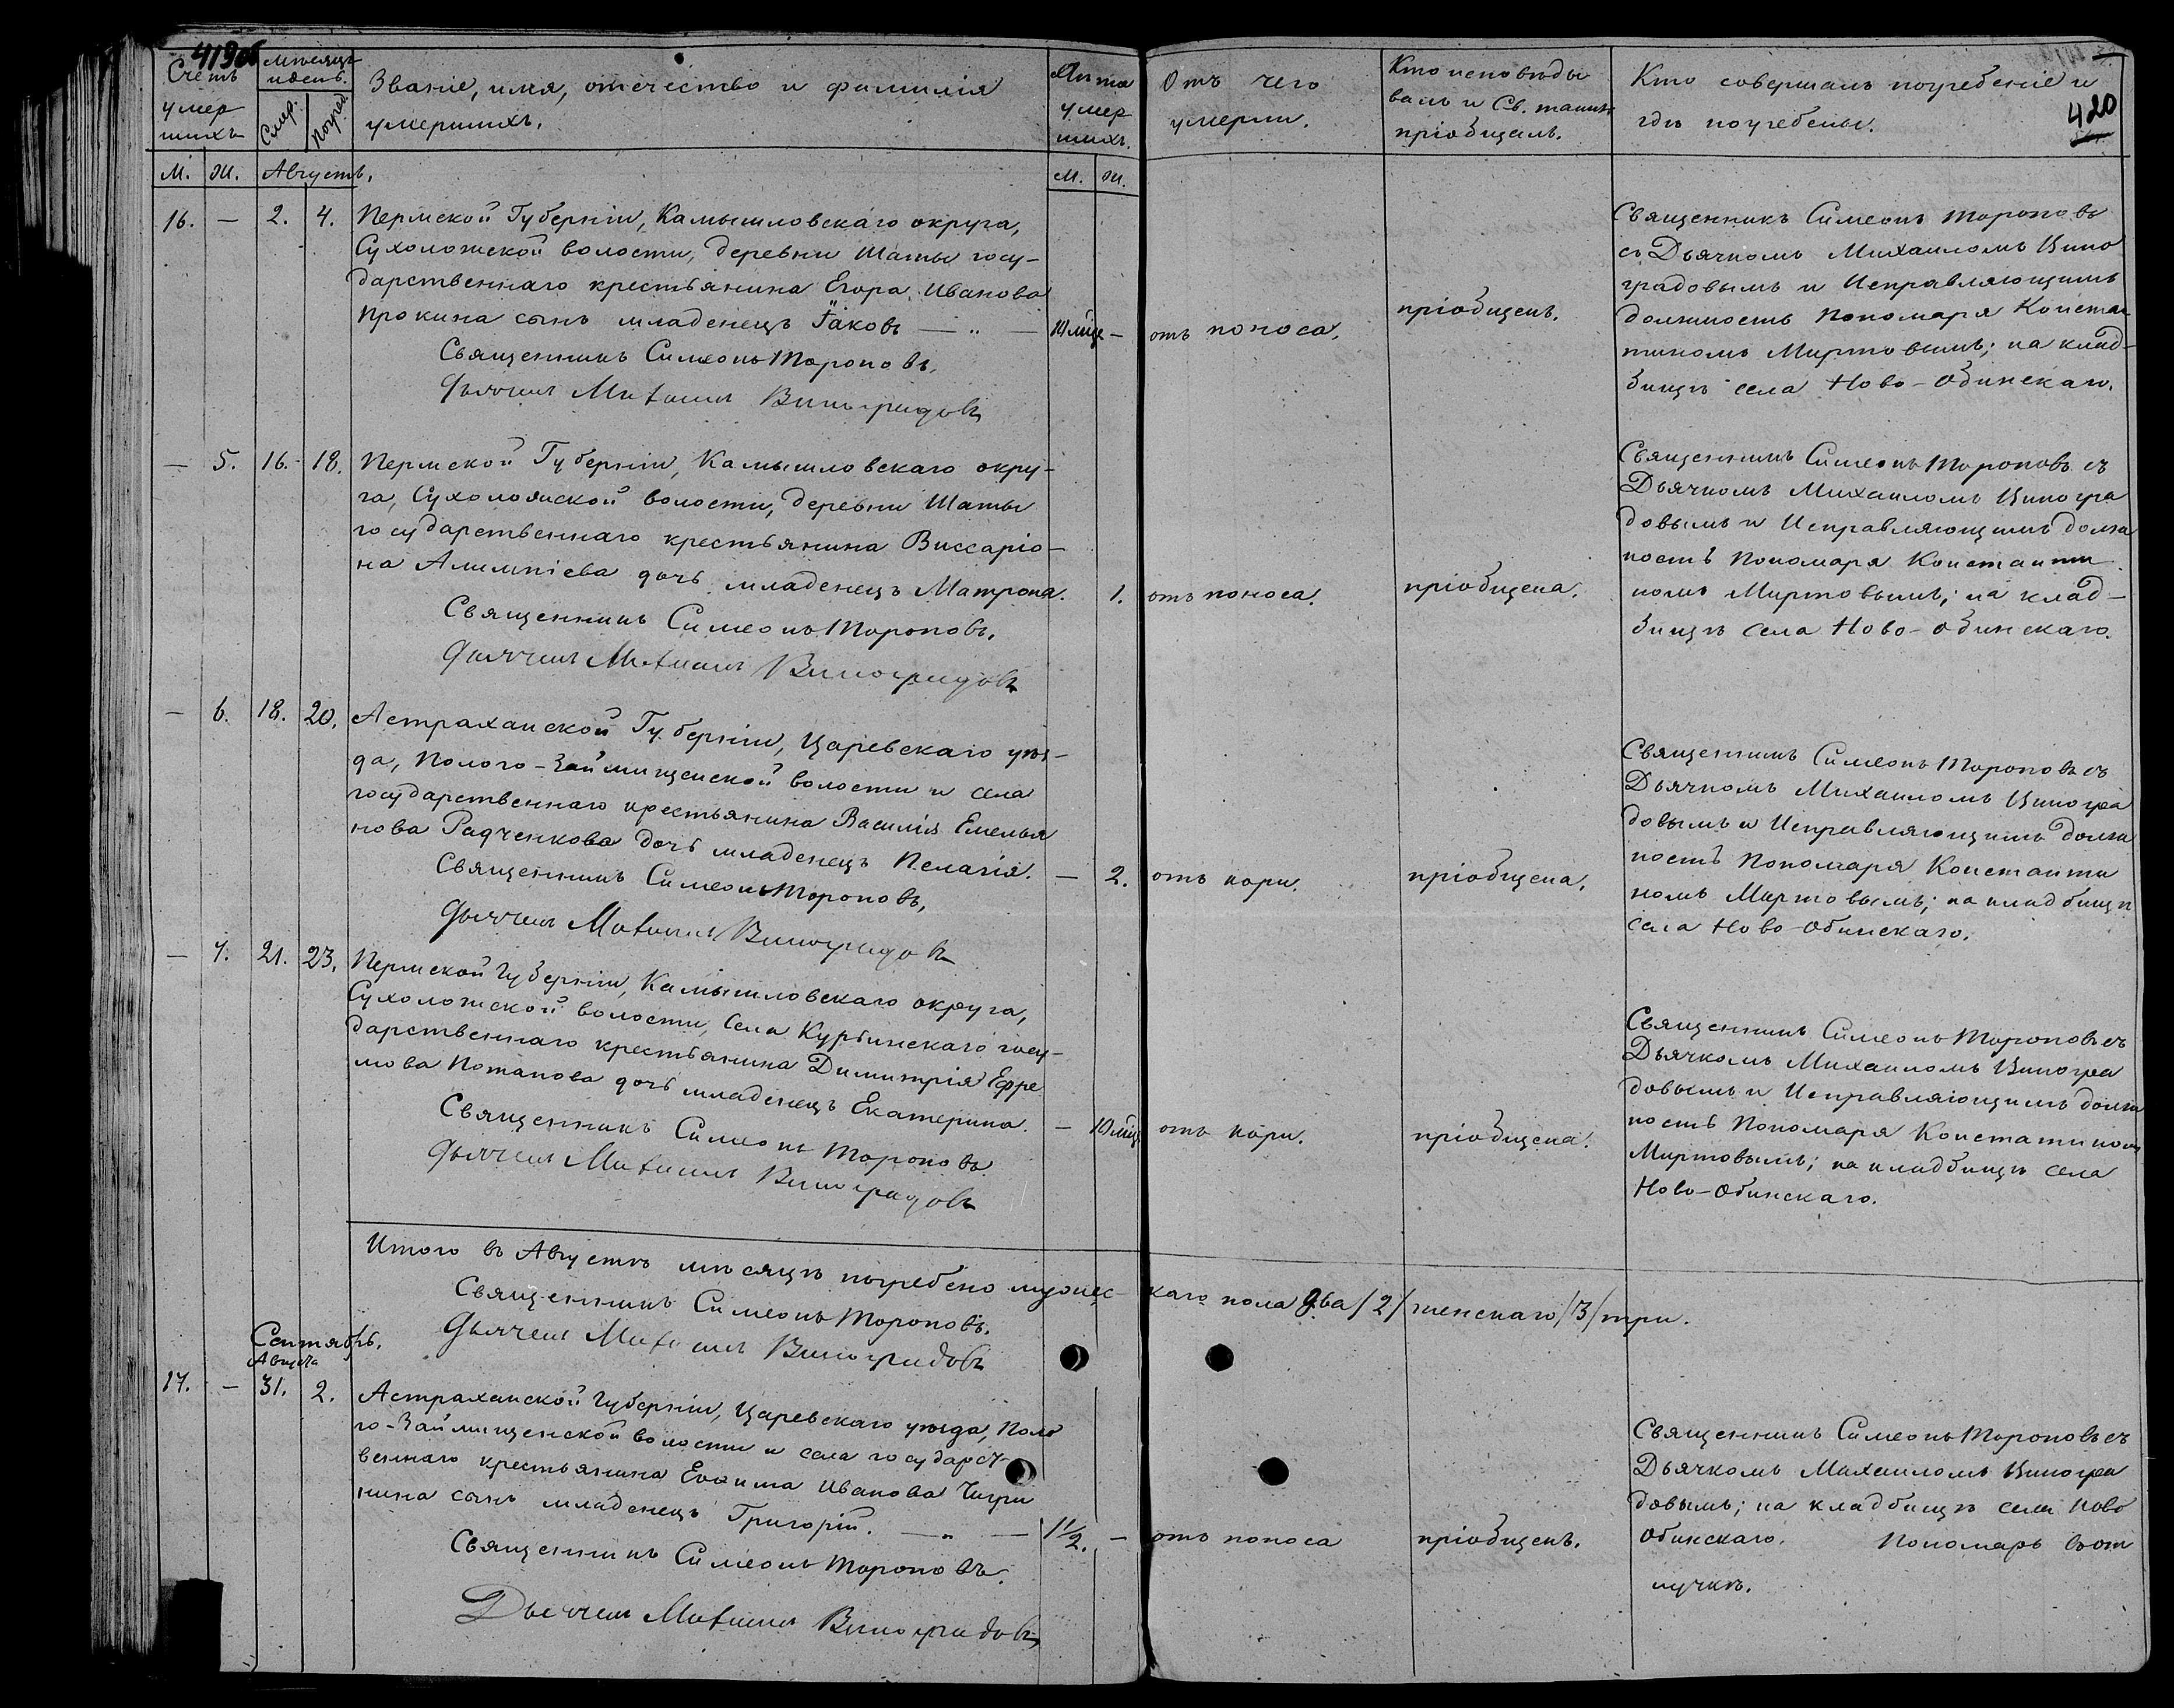 419об
420
Счетъ умершихъ
Мѣсяцъ и день.
Смер.
Погреб.
Званіе, имя, отечество и фамилія умершихъ.
Лѣта умершихъ.
Отъ чего умерли.
Кто исповѣдывалъ и Св. таинъ пріобщалъ.
Кто совершалъ погребеніе и гдѣ погребены.
М. Ж. Августъ. М. Ж.
16. — 2. 4. Пермской Губерніи, Камышловскаго округа,
Сухоложской волости, деревни Шаты госу-
дарственнаго крестьянина Егора Иванова
Прокина сынъ младенецъ Іаковъ — „ — 10 мѣц —
Священникъ Симеонъ Тороповъ.
Дьячекъ Михаилъ Виноградовъ
отъ поноса.
пріобщенъ.
Священникъ Симеонъ Тороповъ
съ Дьячкомъ Михаиломъ Вино
градовымъ и Исправляющимъ
должность Пономаря Констан
тиномъ Миртовымъ; на клад-
бищѣ села Ново-Обинскаго.
— 5. 16. 18. Пермской Губерніи, Камышловскаго окру-
га, Сухоложской волости, деревни Шаты
государственнаго крестьянина Виссаріо-
на Алимпіева дочь младенецъ Матрона. 1.
Священникъ Симеонъ Тороповъ.
Дьячекъ Михаилъ Виноградовъ
отъ поноса.
пріобщена.
Священникъ Симеонъ Тороповъ съ
Дьячкомъ Михаиломъ Виногра
довымъ и Исправляющимъ долж
ность Пономаря Константи
номъ Миртовымъ; на клад-
бищѣ села Ново-Обинскаго.
— 6. 18. 20. Астраханской Губерніи, Царевскаго уѣз-
да, Пологo-Займищенской волости и села
государственнаго крестьянина Василія Емелья
нова Радченкова дочь младенецъ Пелагія. — 2.
Священникъ Симеонъ Тороповъ,
Дьячекъ Михаилъ Виноградовъ
отъ кори.
пріобщена.
Священникъ Симеонъ Тороповъ съ
Дьячкомъ Михаиломъ Виногра
довымъ и Исправляющимъ долж
ность Пономаря Константи
номъ Миртовымъ; на кладбищѣ
села Ново-Обинскаго.
— 7. 21. 23. Пермской Губерніи, Камышловскаго округа,
Сухоложской волости, села Курьинскаго госу-
дарственнаго крестьянина Димитрія Ефре
мова Потапова дочь младенецъ Екатерина. — 10 мѣц.
Священникъ Симеонъ Тороповъ
Дьячекъ Михаилъ Виноградовъ
отъ кори.
пріобщена.
Священникъ Симеонъ Тороповъ съ
Дьячкомъ Михаиломъ Виногра
довымъ и Исправляющимъ долж
ность Пономаря Констатиномъ
Миртовымъ; на кладбищѣ села
Ново-Обинскаго.
Итого въ Августѣ мѣсяцѣ погребено мужес-каго пола два /2/ женскаго /3/ три.
Священникъ Симеонъ Тороповъ.
Дьячекъ Михаилъ Виноградовъ
Сентябрь.
Августа
17. — 31. 2. Астраханской Губерніи, Царевскаго уѣзда, Поло
го-Займищенской волости и села государст
веннаго крестьянина Евѳима Иванова Чигри
нина сынъ младенецъ Григорій. — „ — 1 1/2. —
Священникъ Симеонъ Тороповъ.
Дьячекъ Михаилъ Виноградовъ
отъ поноса
пріобщенъ.
Священникъ Симеонъ Тороповъ съ
Дьячкомъ Михаиломъ Виногра
довымъ; на кладбищѣ села Ново
Обинскаго. Пономарь въ от
лучкѣ.